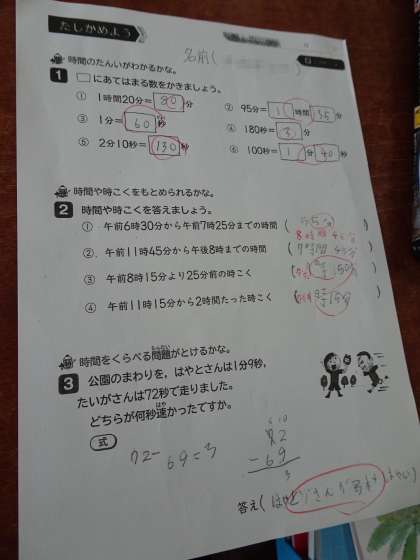 たしかめよう
名前(
時間のたんいがわかるかな。
1 □にあてはまる数をかきましょう。
① 1時間20分=80分 ② 95分=1時間35分
③ 1分=60秒 ④ 180秒=3分
⑤ 2分10秒=130秒 ⑥ 100秒=1分40秒
時間や時こくをもとめられるかな。
2 時間や時こくを答えましょう。
① 午前6時30分から午前7時25分までの時間 (55分)
8時間45分
② 午前11時45分から午後8時までの時間 (7時間45分)
③ 午前8時15分より25分前の時こく
④ 午前11時15分から2時間たった時こく
時間をくらべる問題がとけるかな。
3 公園のまわりを，はやとさんは1分9秒，
たいがさんは72秒で走りました。
どちらが何秒速かったですか。
式
72-69=3
6 10
82
-69
3
答え(